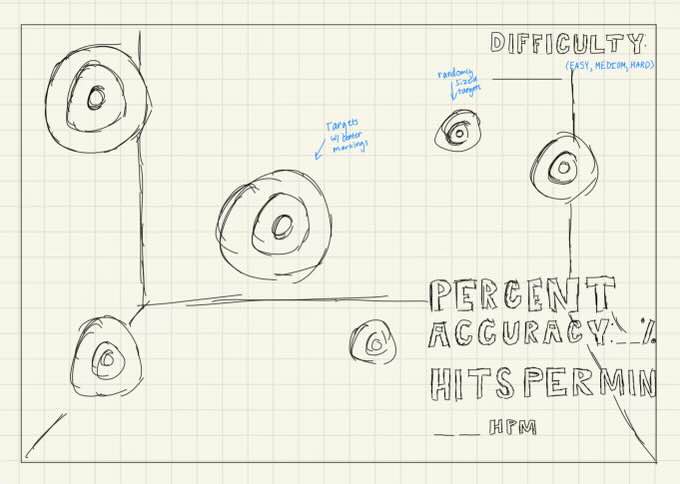 DIFFICULTY
(EASY, MEDIUM, HARD)
randomly
sized
targets
Targets
w/ center
markings
PERCENT
ACCURACY: _ _ %
HITS PER MIN
_ _ HPM